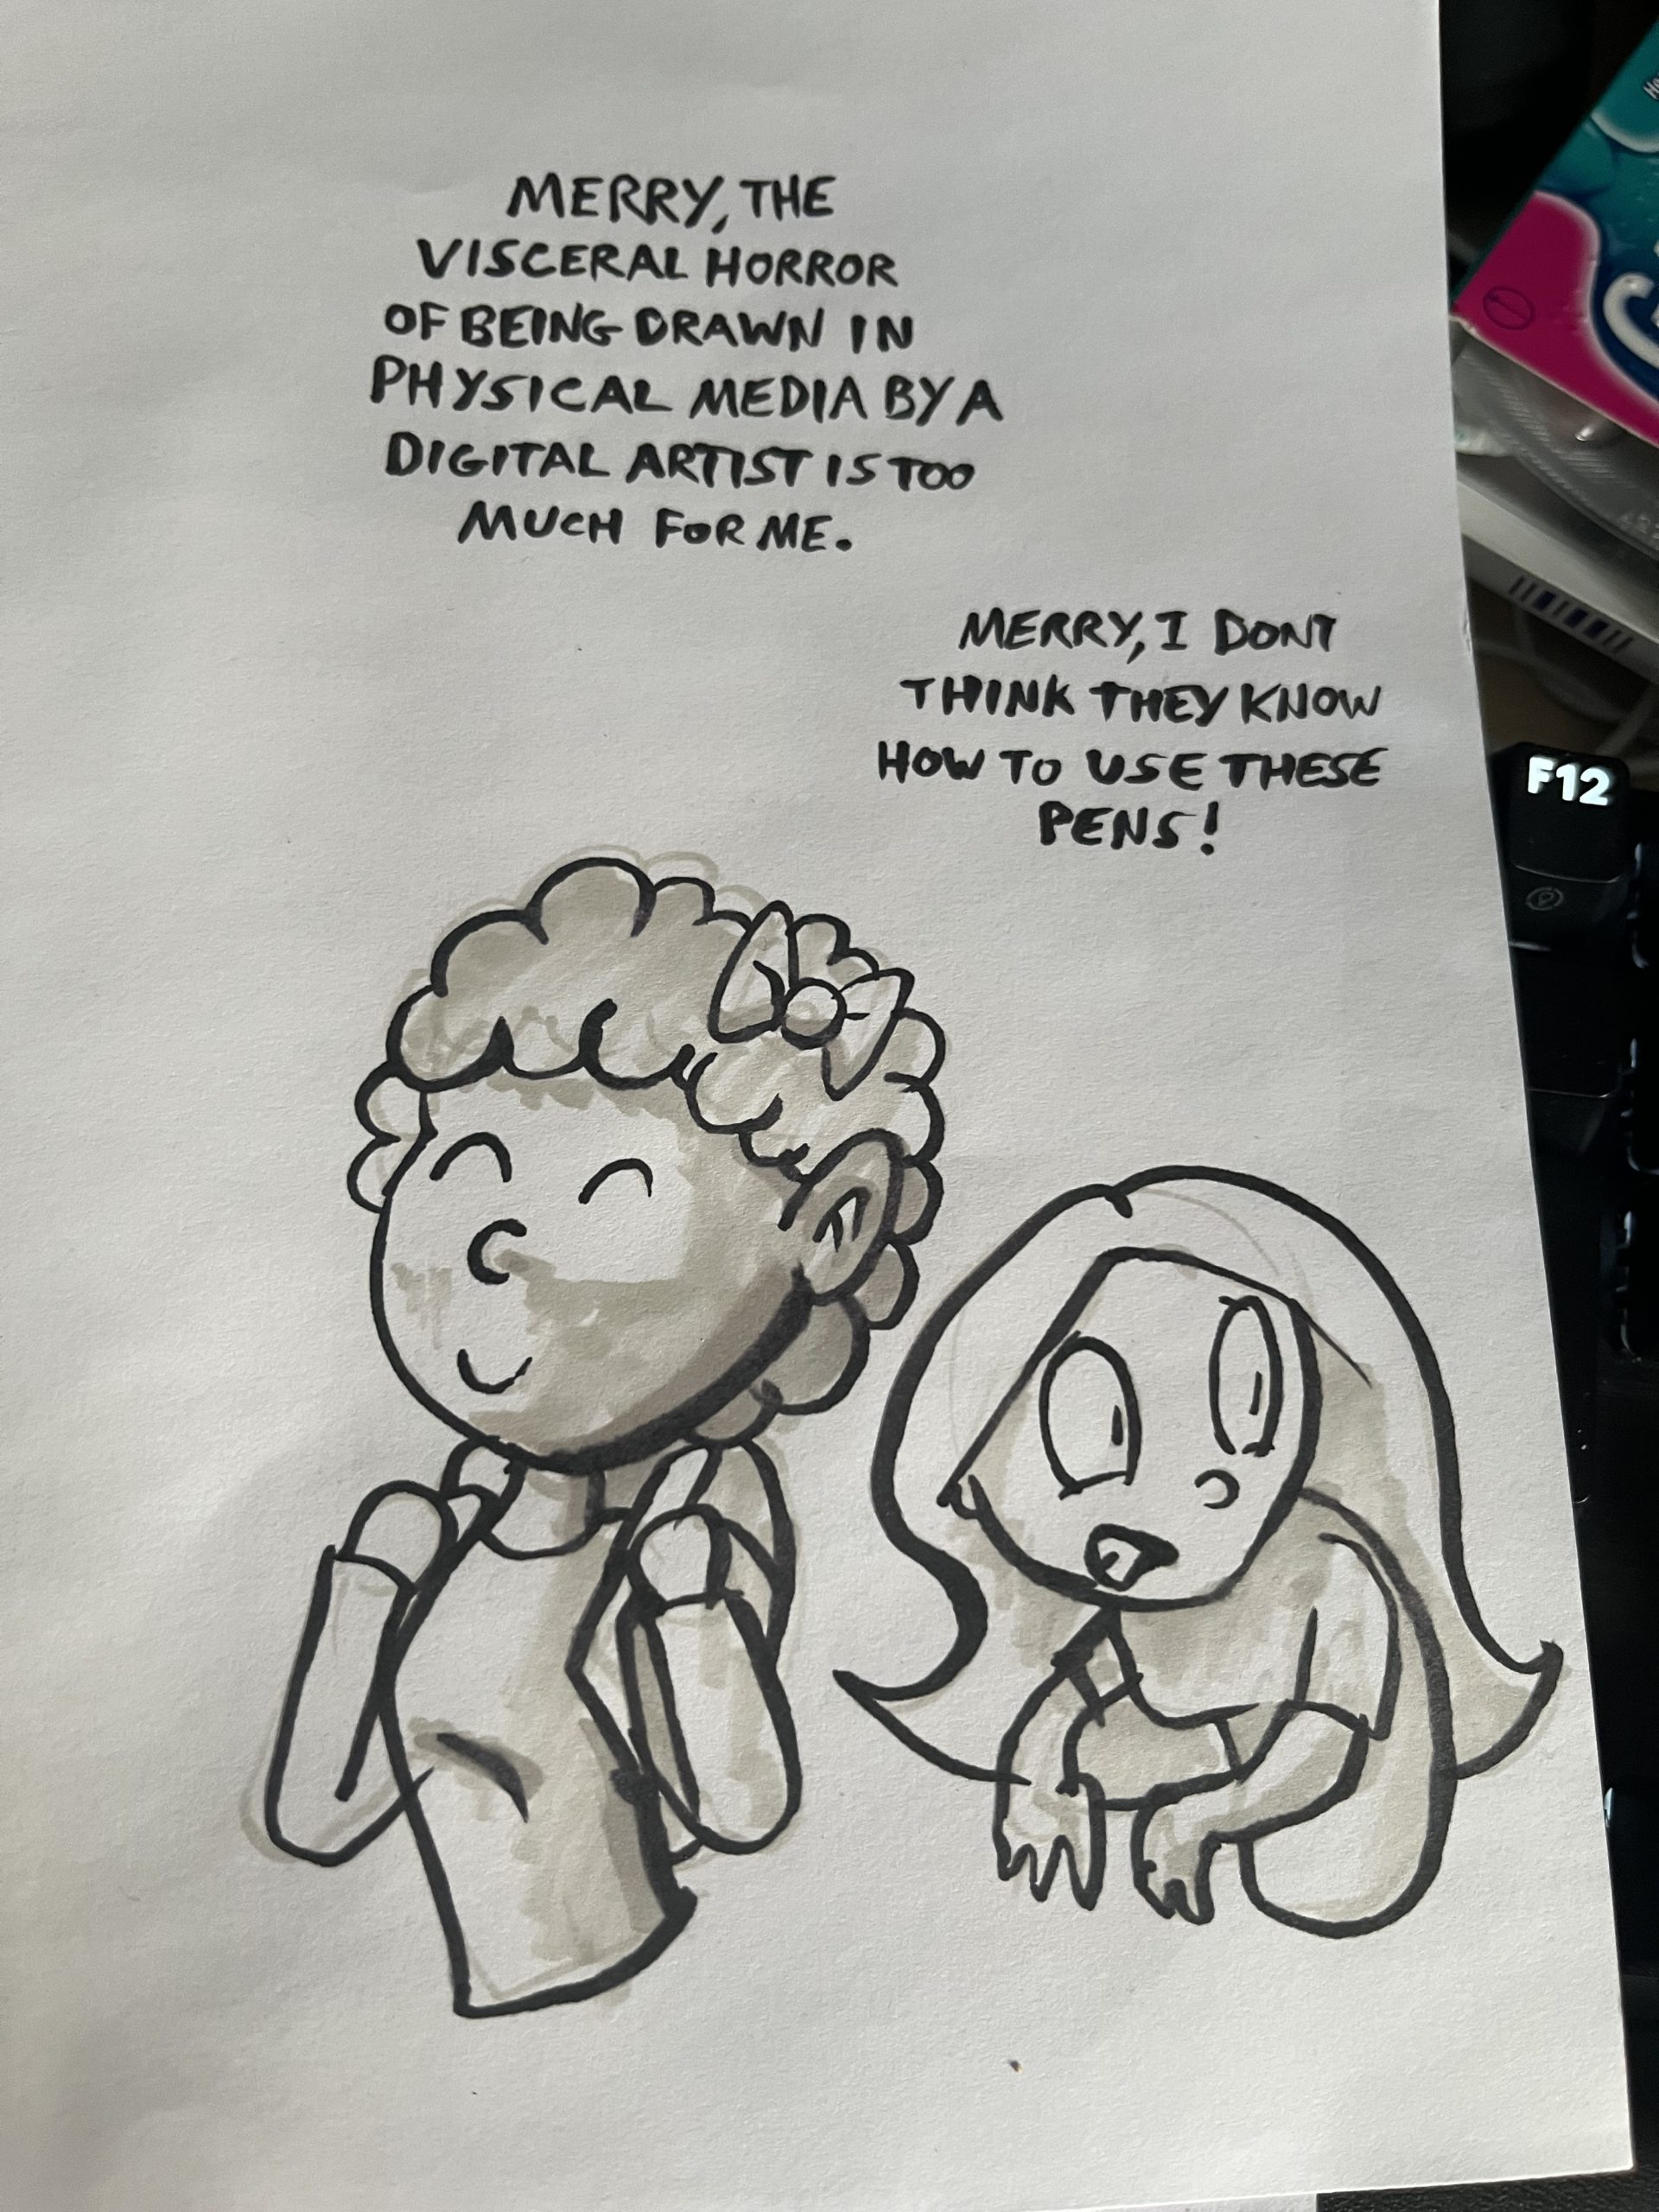 MERRY, THE
VISCERAL HORROR
OF BEING DRAWN IN
PHYSICAL MEDIA BY A
DIGITAL ARTIST IS TOO
MUCH FOR ME.
MERRY, I DONT
THINK THEY KNOW
HOW TO USE THESE
PENS!
F12